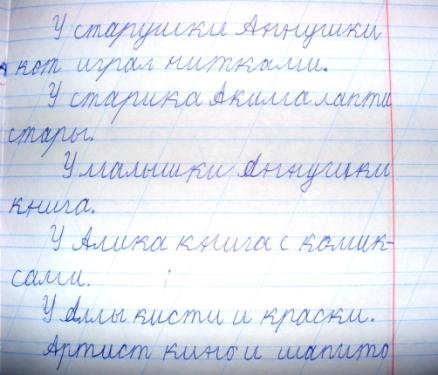 У старушки Аннушки
кот играл нитками.
У старика Акима лапти
стары.
У малышки Аннушки
книга.
У Алика книга с комик-
сами.
У Аллы кисти и краски.
Артист кино и шапито